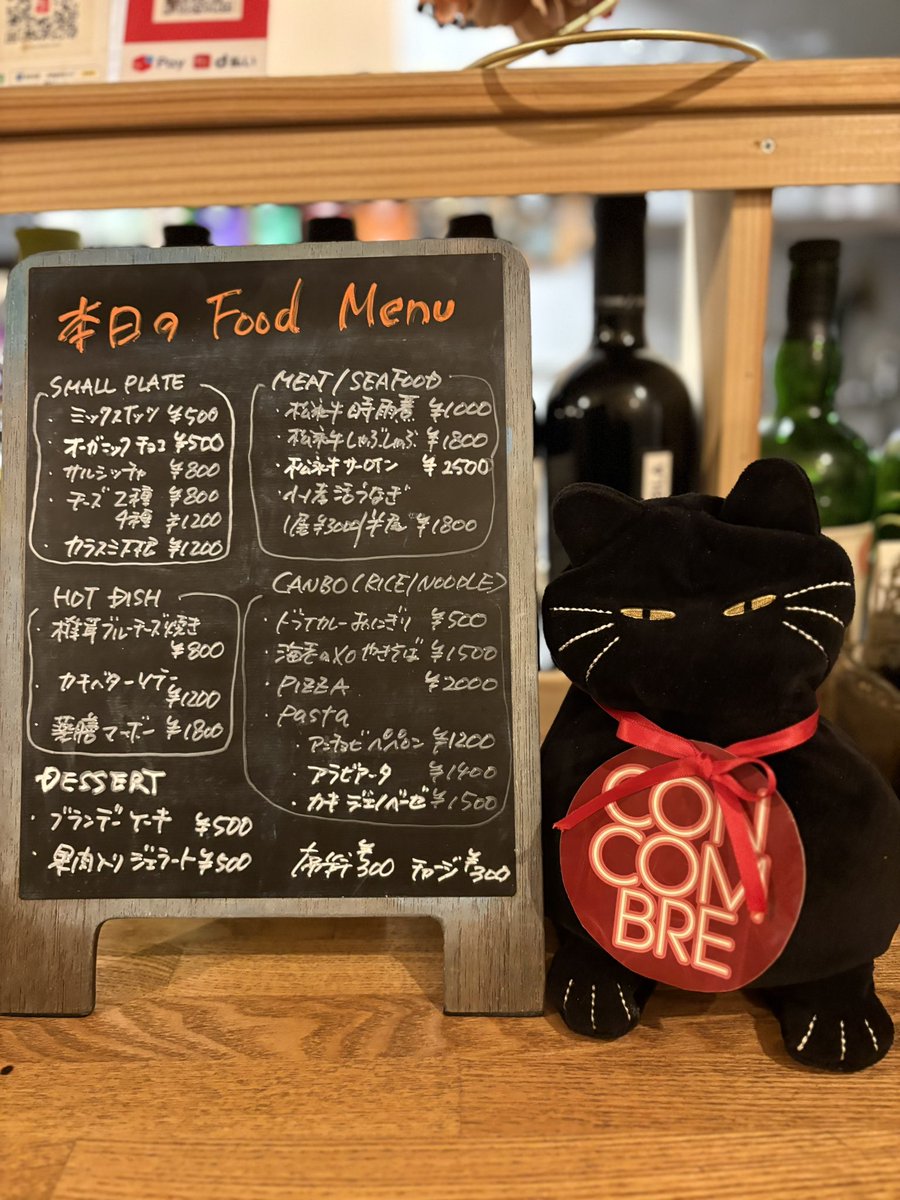 Pay
d払い
本日の Food Menu
SMALL PLATE
・ミックスナッツ ¥500
・オーガニックチョコ ¥500
・サルシッチャ ¥800
・チーズ 2種 ¥800
4種 ¥1200
・カラスミ大根 ¥1200
HOT DISH
・椎茸ブルーチーズ焼き
¥800
・カキバターソテー
¥1200
・薬膳マーボー ¥1800
DESSERT
・ブランデーケーキ ¥500
・果肉入りジェラート ¥500
MEAT/SEAFOOD
・松永牛時雨煮 ¥1000
・松永牛しゃぶしゃぶ ¥1800
・松永牛サーロイン ¥2500
うなぎ
1尾¥3000/半尾 ¥1800
CANBO (RICE/NOODLE)
・ドライカレーおにぎり ¥500
・海老のXOやきそば ¥1500
・PIZZA ¥2000
・Pasta
・アンチョビペペロン ¥1200
・アラビアータ ¥1400
・カキジェノベーゼ ¥1500
¥300 チャージ ¥300
CON
COM
BRE